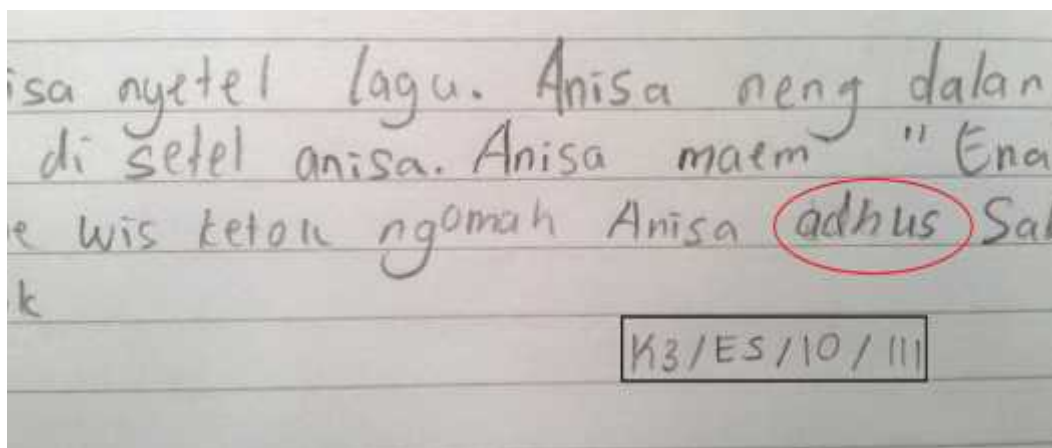 isa nyetel lagu. Anisa neng dalan
di setel anisa. Anisa maem "Ena
e wis ketok ngomah Anisa adhus Sa
k
K3/ES/10/III